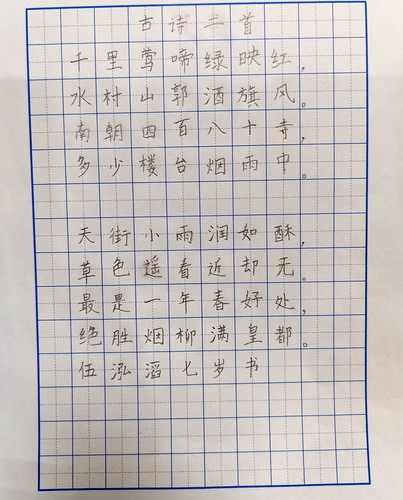 古诗二首
千里莺啼绿映红,
水村山郭酒旗风。
南朝四百八十寺,
多少楼台烟雨中。
天街小雨润如酥,
草色遥看近却无。
最是一年春好处,
绝胜烟柳满皇都。
伍泓滔七岁书